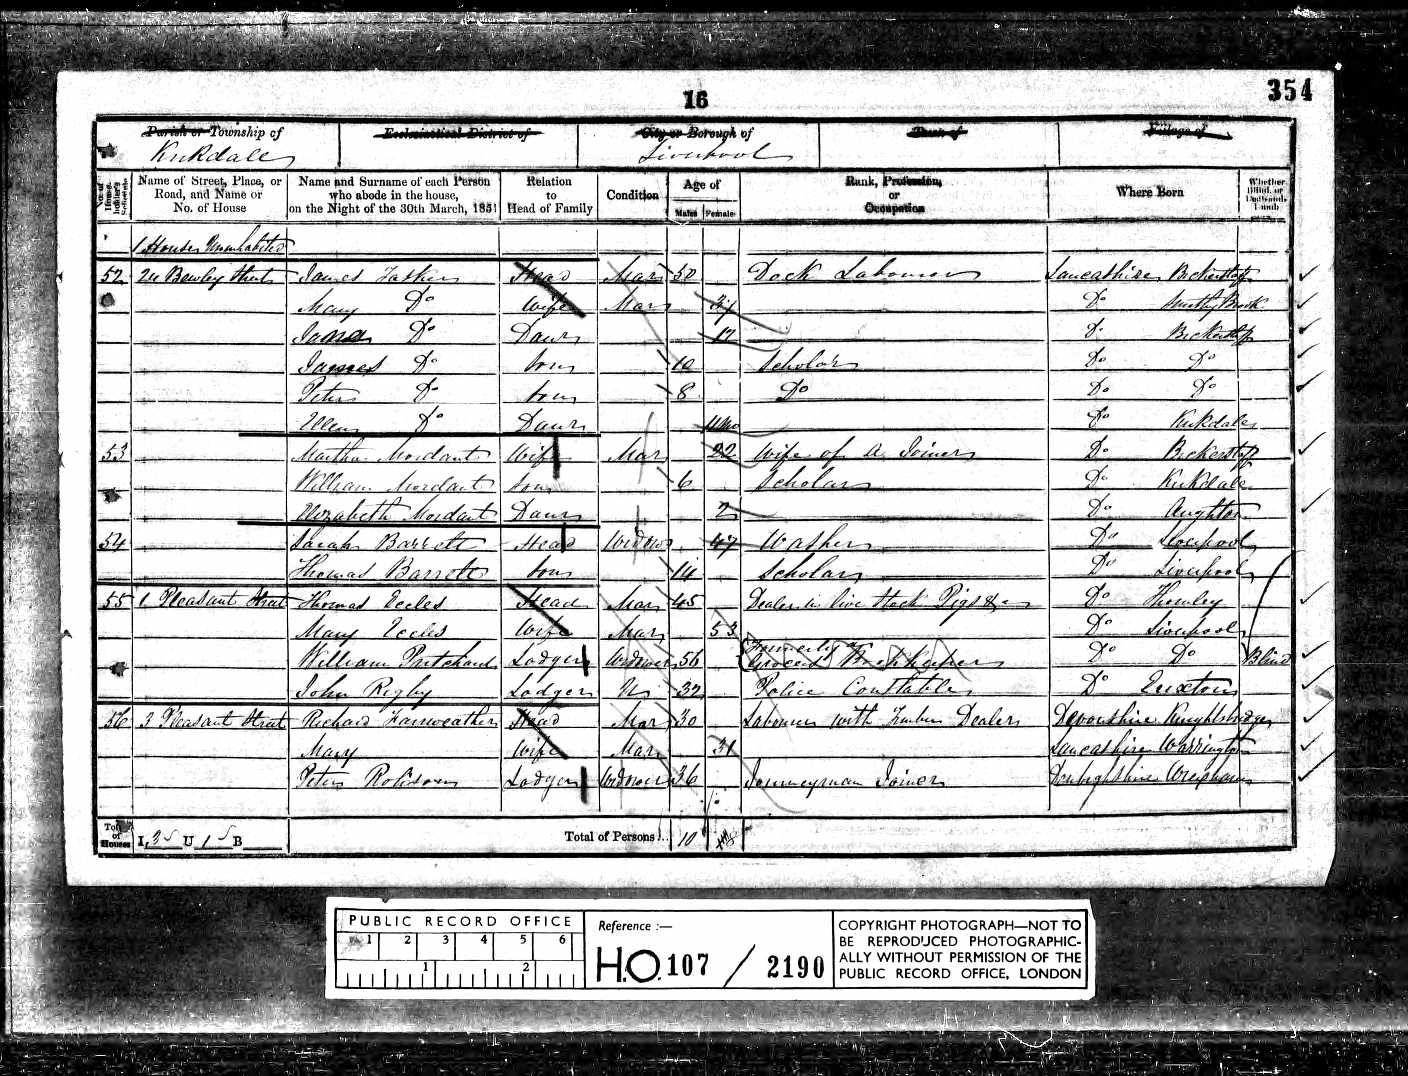 354
16
Parish or Township of Ecclesiastical District of City or Borough of Town of Village of
Kirkdale Liverpool
Name of Street, Place, or Road, and Name or No. of House
Name and Surname of each Person who abode in the house, on the Night of the 30th March, 1851
Relation to Head of Family
Condition
Age of
Males Females
Rank, Profession, or Occupation
Where Born
Whether Blind, or Deaf-and-Dumb
1 House Uninhabited
52 24 Bewley Street James Head Mar 50 Dock Labourer Lancashire Bickerstaffe
Mary Do Wife Mar Do
Do Daur 12 Do Bickerstaffe
James Do Son 10 Scholar Do Do
Peter Do Son 8 Do Do Do
Ellen Do Daur 11 Mo Do Kirkdale
53 Martha Mordant Wife Mar 22 Wife of A Joiner Do Bickerstaffe
William Mordant Son 6 Scholar Do Kirkdale
Elizabeth Mordant Daur 2 Do Aughton
54 Sarah Barrett Head Widow 47 Washer Do Liverpool
Thomas Barrett Son 14 Scholar Do Liverpool
55 1 Pleasant Street Thomas Eccles Head Mar 45 Dealer in live Stock Pigs &c Do
Mary Eccles Wife Mar 53 Do Liverpool
William Pritchard Lodger Widower 56 Formerly a Grocer Do Do Blind
John Rigby Lodger Un 32 Police Constable Do Euxton
56 3 Pleasant Street Richard Fairweather Head Mar 30 Labourer with Timber Dealer Devonshire
Mary Wife Mar 31 Lancashire Warrington
Peter Lodger Widower 36 Journeyman Joiner Denbighshire Wrexham
Total of Houses I. 3 U 1 B Total of Persons... 10
PUBLIC RECORD OFFICE
1 2 3 4 5 6
1 2
Reference :—
H.O. 107 / 2190
COPYRIGHT PHOTOGRAPH—NOT TO
BE REPRODUCED PHOTOGRAPHIC-
ALLY WITHOUT PERMISSION OF THE
PUBLIC RECORD OFFICE, LONDON